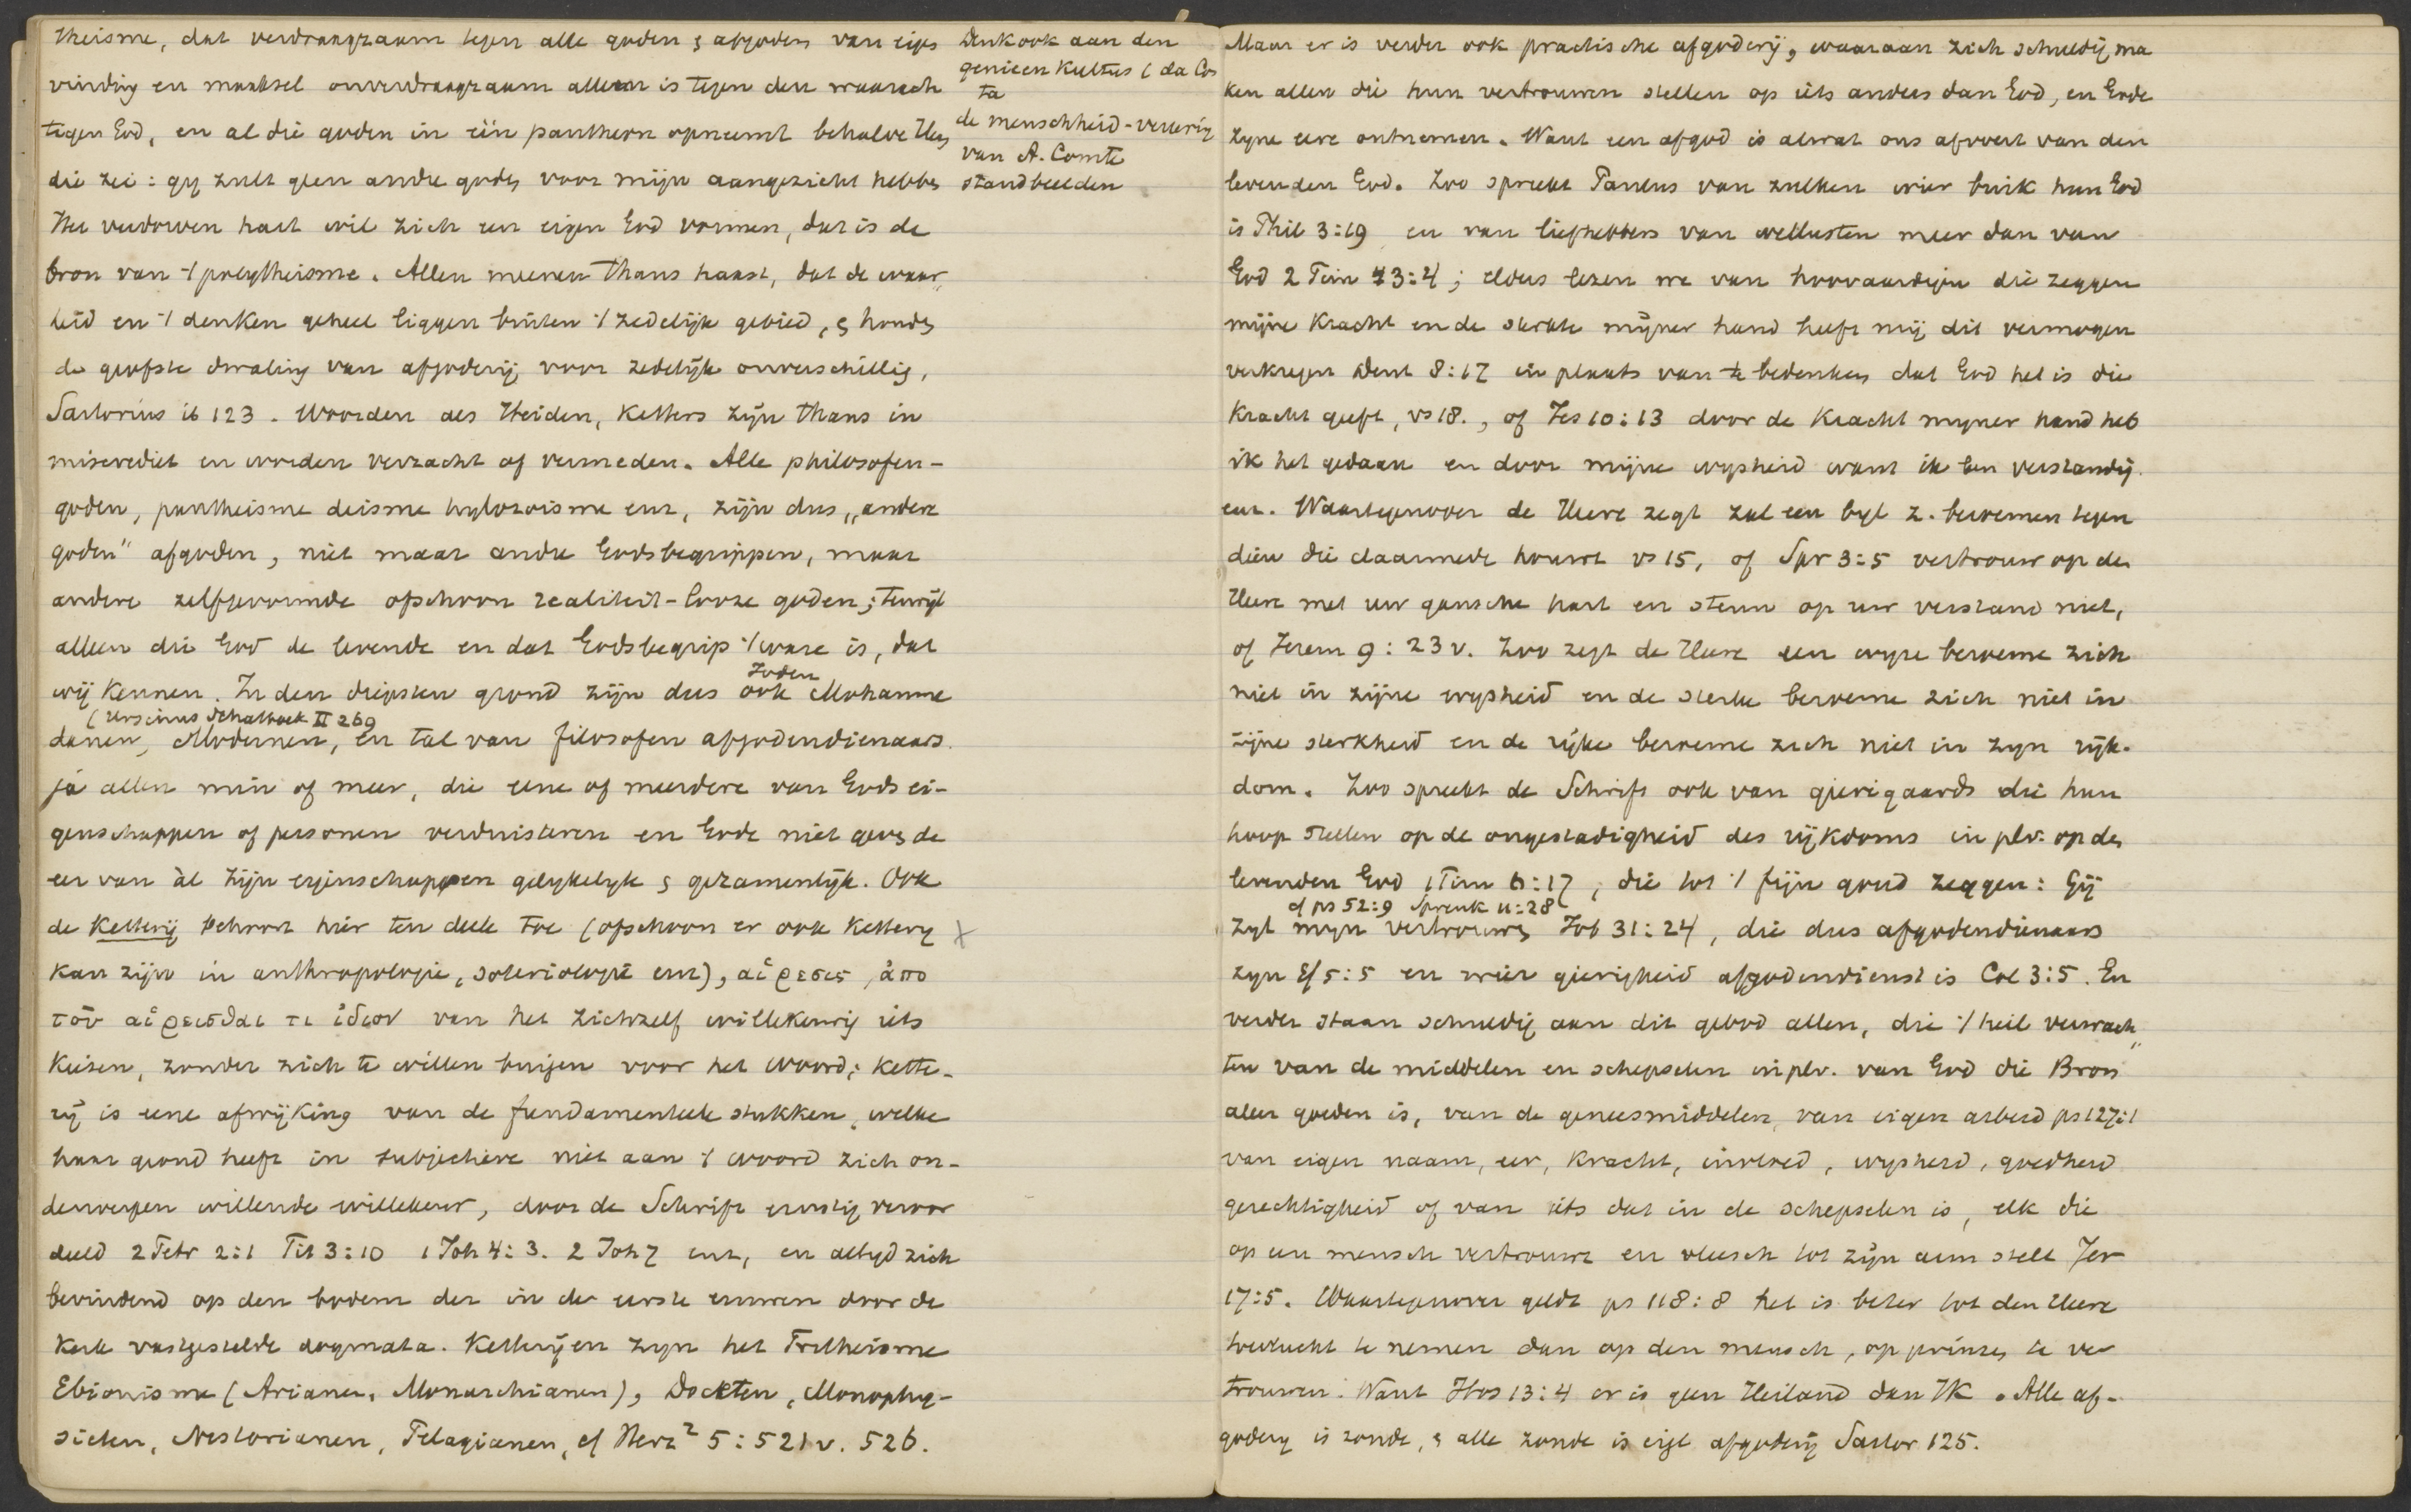 theisme, dat verdraagzaam tegen alle goden & afgoden van eigen
vinding en maaksel onverdraagzaam alleen is tegen den waarach
tigen God, en al die goden in één pantheon opneemt behalve Hem
die zei: gij zult geen andre goden voor mijn aangezicht hebben
Het verdorven hart wil zich een eigen God vormen, dat is de
bron van 't polytheisme. Allen meenen thans haast, dat de waar„
heid en 't denken geheel liggen buiten 't zedelijk gebied, & houden
de grofste dwaling van afgoderij voor zedelijk onverschillig,
Sartorius ib 123. Woorden als Heiden, Ketters zijn thans in
miscrediet en worden verzacht of vermeden. Alle philosofen-
goden, pantheisme deisme hylozoisme enz, zijn dus „andere
goden" afgoden, niet maar andre Godsbegrippen, maar
andere zelfgevormde ofschoon realiteit-looze goden; terwijl
alleen die God de levende en dat Godsbegrip 't ware is, dat
Joden
wij kennen. In den diepsten grond zijn dus ook Mohamme
(Ursinus Schatboek II 269
danen, Modernen, en tal van filosofen afgodendienaars.
ja allen min of meer, die eene of meerdere van Gods ei-
genschappen of personen verduisteren en Gode niet geven de
eer van àl zijn eigenschappen gelijkelijk & gezamenlijk. Ook
de Ketterij behoort hier ten deele toe (ofschoon er ook Ketterij X
kan zijn in anthropologie, soteriologie enz), αἱρεσις, ἀπο
τοῦ αἱρεισθαι τι ἰδιον van het zichzelf willekeurig iets
kiezen, zonder zich te willen buigen voor het Woord; Kette-
rij is eene afwijking van de fundamenteele stukken, welke
haar grond heeft in subjectieve niet aan 't woord zich on-
derwerpen willende willekeur, door de Schrift ernstig veroor
deeld 2 Petr 2:1 Tit 3:10 1 Joh 4:3. 2 Joh 7 enz, en altijd zich
bevindend op den bodem der in de eerste eeuwen door de
Kerk vastgestelde dogmata. Ketterijen zijn het Tritheisme
Ebionisme (Arianen, Monarchianen), Docetten, Monophy-
sieten, Nestorianen, Pelagianen, cf Herz² 5:521v. 526.
Denk ook aan den
genieen Kultus (da Cos
ta
de menschheid-vereering
van A. Comte
standbeelden
Maar er is verder ook practische afgoderij, waaraan zich schuldig ma
ken allen die hun vertrouwen stellen op iets anders dan God, en Gode
zijne eere ontnemen. Want een afgod is alwat ons afvoert van den
levenden God. Zoo spreekt Paulus van zulken wier buik hun God
is Phil 3:19 en van liefhebbers van wellusten meer dan van
God 2 Tim 3:4; elders lezen we van hoovaardigen die zeggen
mijne Kracht en de sterkte mijner hand heeft mij dit vermogen
verkregen Deut 8:17 in plaats van te bedenken dat God het is die
Kracht geeft, vs 18., of Jes 10:13 door de Kracht mijner hand heb
ik het gedaan en door mijne wijsheid want ik ben verstandig.
enz. Waartegenover de Heere zegt zal een bijl z. beroemen tegen
dien die daarmede houwt vs 15, of Spr 3:5 vertrouw op den
Heere met uw gansche hart en steun op uw verstand niet,
of Jerem 9:23v. Zoo zegt de Heere een wijze beroeme zich
niet in zijne wijsheid en de sterke beroeme zich niet in
zijne sterkheid en de rijke beroeme zich niet in zijn rijk-
dom. Zoo spreekt de Schrift ook van gierigaards die hun
hoop stellen op de ongestadigheid des rijkdoms in plv. op den
levenden God 1 Tim 6:17, die tot 't fijn goud zeggen: Gij
cf ps 52:9 Spreuk 11:28
zijt mijn vertrouwen Job 31:24, die dus afgodendienaars
zijn Ef 5:5 en wier gierigheid afgodendienst is Col 3:5. En
verder staan schuldig aan dit gebod allen, die 't heil verwach„
ten van de middelen en schepselen in plv. van God die Bron
aller goeden is, van de geneesmiddelen, van eigen arbeid ps 127:1
van eigen naam, eer, Kracht, invloed, wijsheid, goedheid
gerechtigheid of van iets dat in de schepselen is, elk die
op een mensch vertrouwt en vleesch tot zijn arm stelt Jer
17:5. Waartegenover geldt ps 118:8 het is beter tot den Heere
toevlucht te nemen dan op den mensch, op prinsen te ver
trouwen. Want Hos 13:4 er is geen Heiland dan IK. Alle af-
goderij is zonde, & alle zonde is eigl afgoderij Sartor 125.